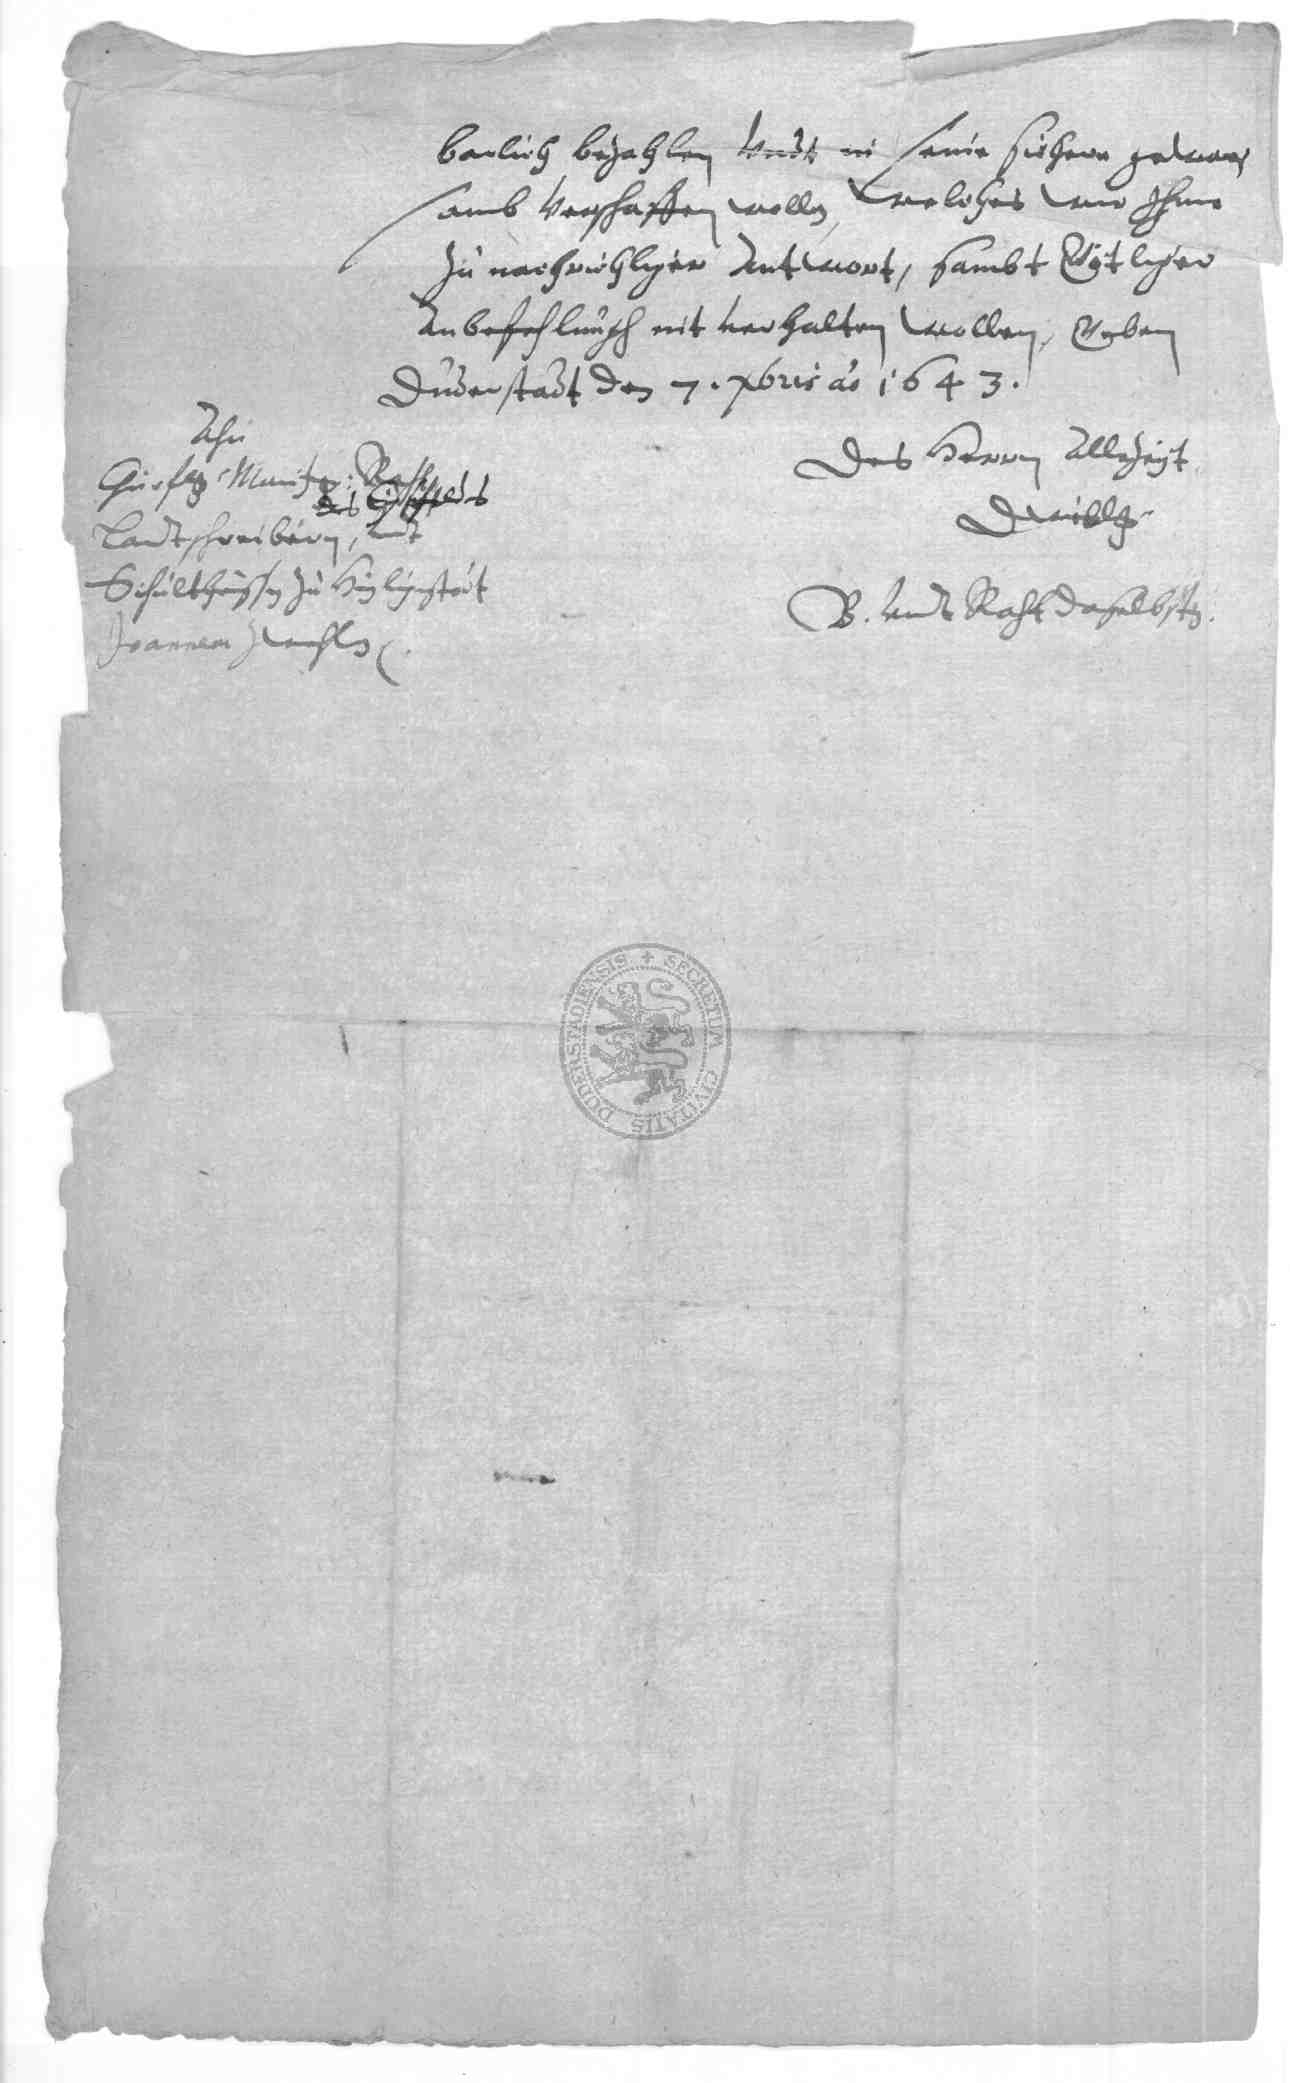 barlich bezahlen undt in seine sichere gewar¬
samb verschaffen wolle, welches wir Ihme
zu nachrichtlicher Antwort, sambt Gottlicher
Anbefehlung nit verhalten wollen, Geben
Duderstadt den 7. xbris ao 1643.
Des Herrn Allzeit
Dwillge
B. undt Raht daselbsten.
Ahn
Churfl Maintz: Raht
des Eichsfelds
Landtschreibern, undt
Schultheissen zu Heiligenstat
Joannem
SECRETUM CIVITATIS DUDERSTADIENSIS